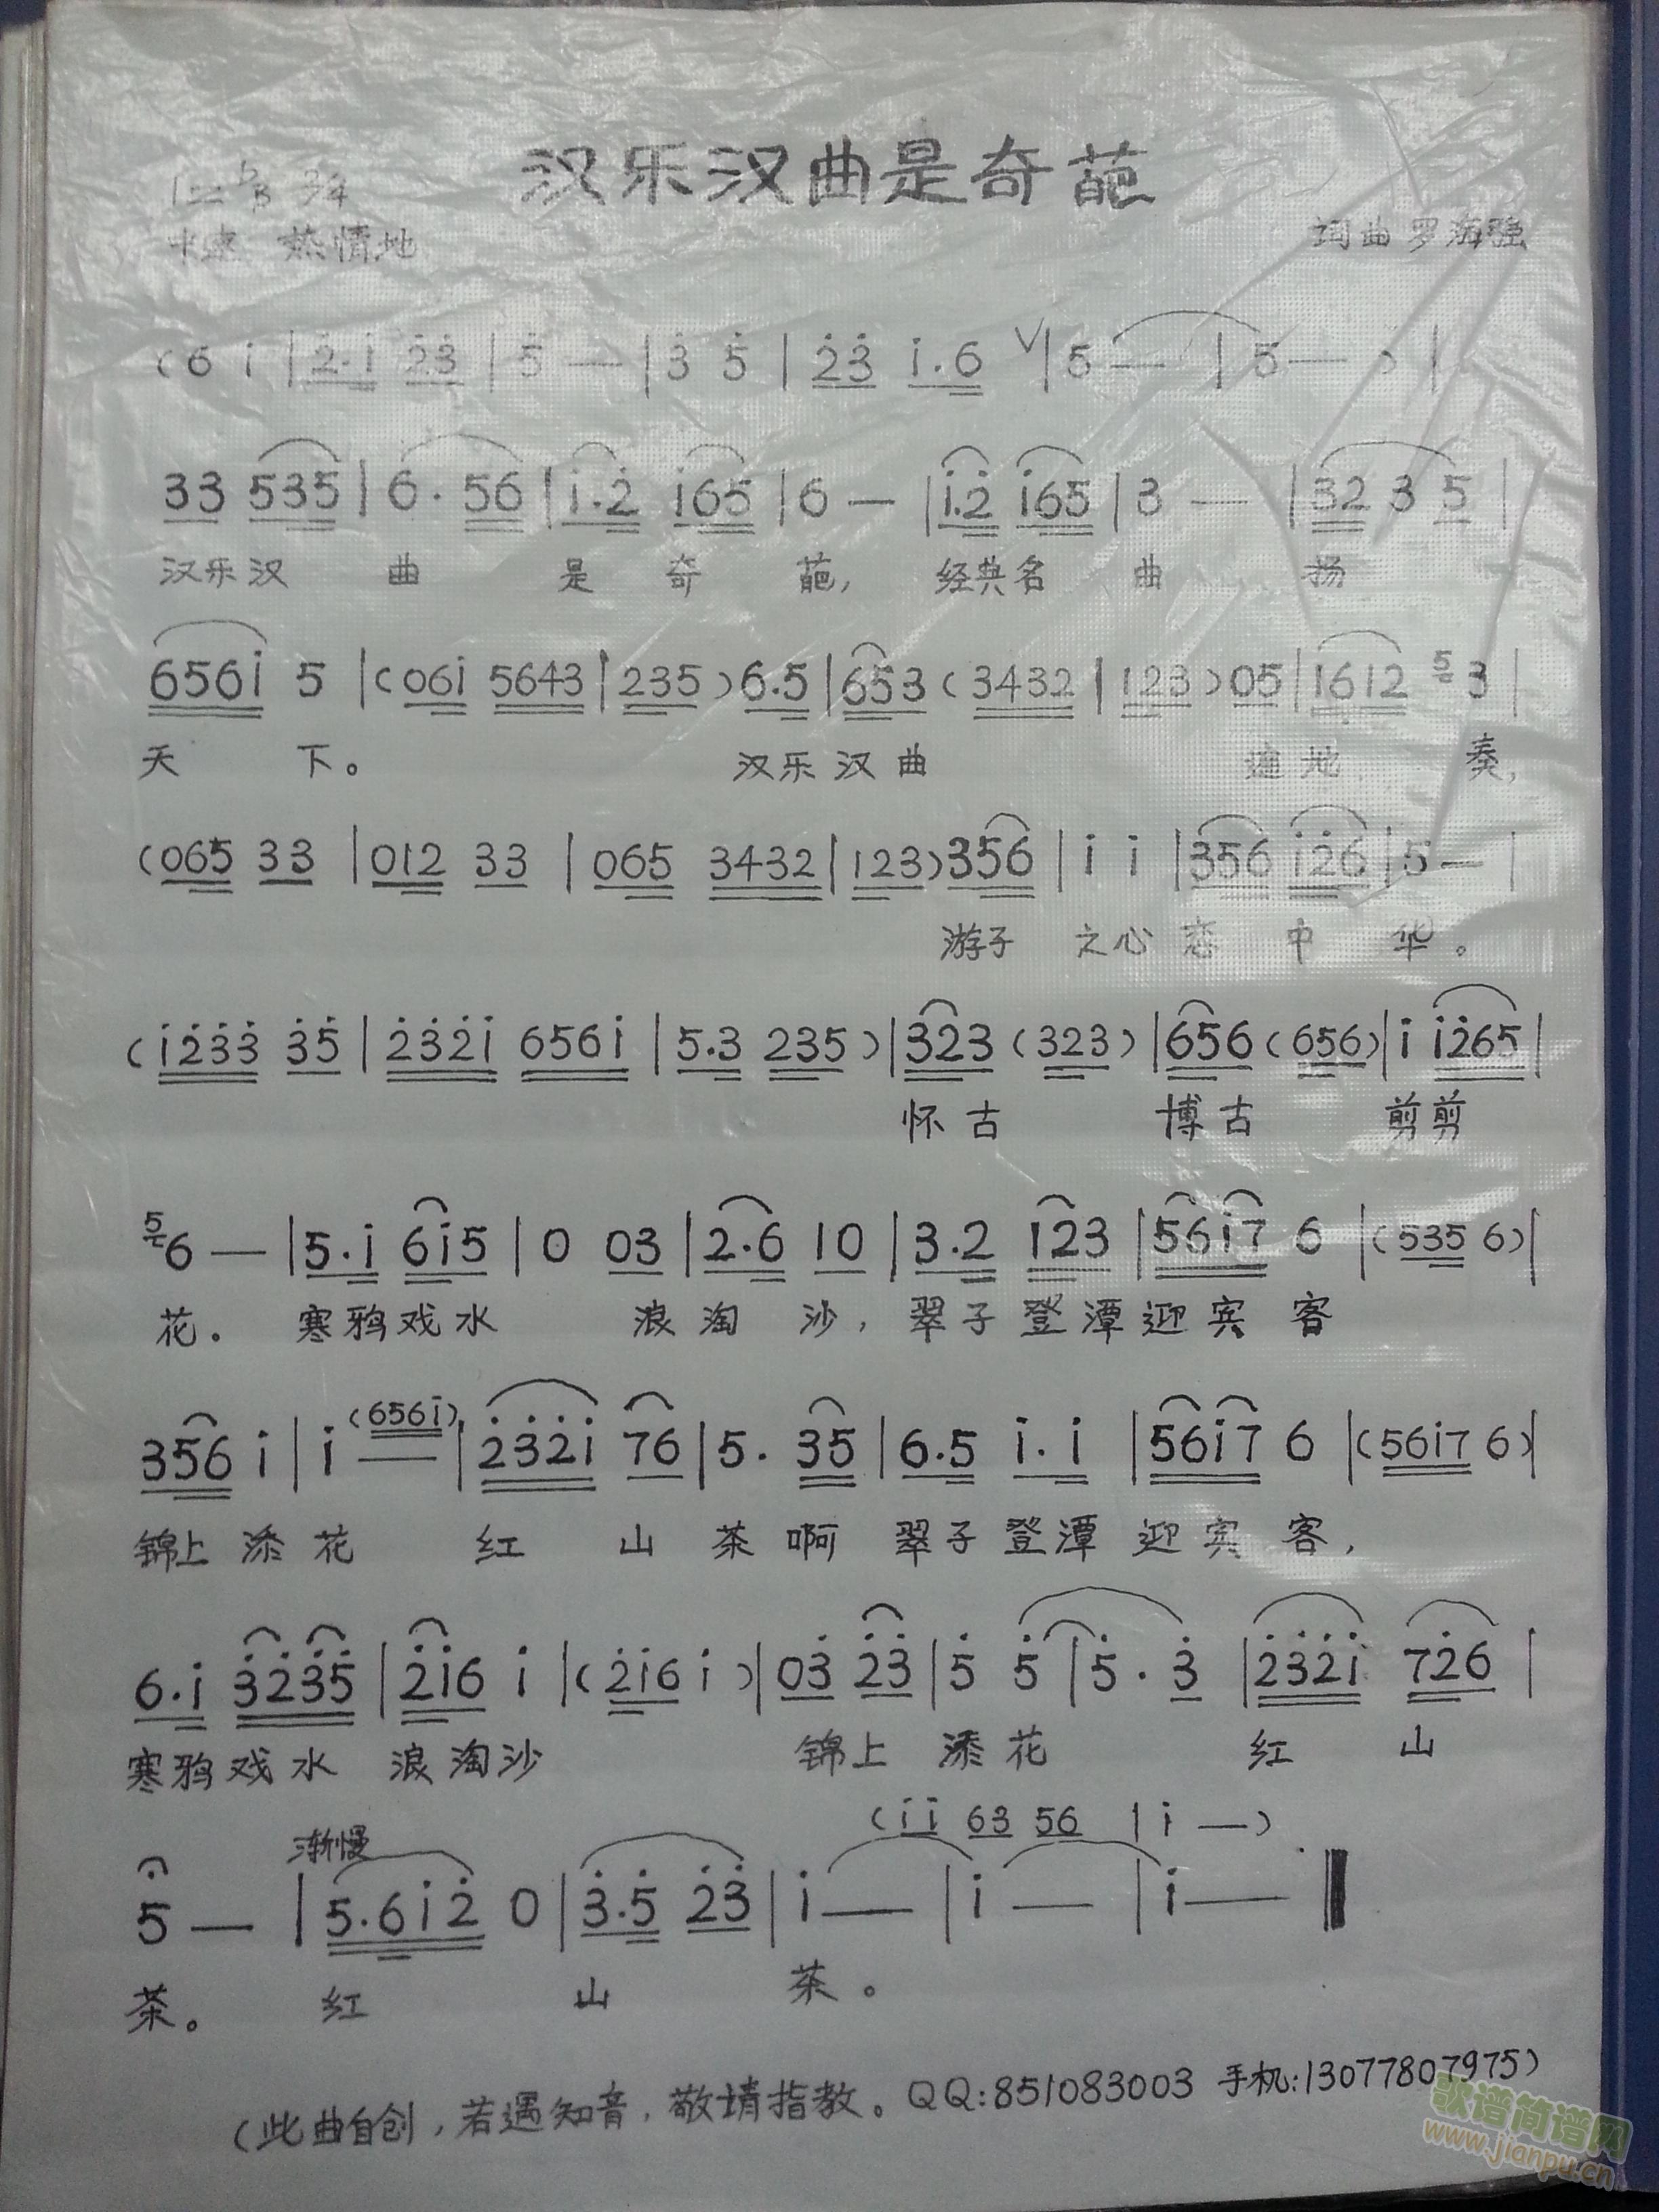 汉乐汉曲是奇葩
1=♭B 2/4
中速 热情地
词曲 罗海强
(6 i | 2·i 23 | 5 — | 3 5 | 23 i·6 ∨ | 5 — | 5 — ) |
33 535 | 6·56 | i·2 i65 | 6 — | i·2 i65 | 3 — | 32 3 5 |
汉乐汉 曲 是 奇 葩, 经典名 曲 扬
656i 5 | (06i 5643 | 235) 6·5 | 653 (3432 | 123) 05 | 1612 5 3 |
天 下。 汉乐汉曲 遍地 奏,
(065 33 | 012 33 | 065 3432 | 123) 356 | i i | 356 i26 | 5 — |
游子 之心恋 中 华。
(i233 35 | 232i 656i | 5·3 235) | 323 (323) | 656 (656) | i i265 |
怀古 博古 剪剪
5 6 — | 5·i 6i5 | 0 03 | 2·6 10 | 3·2 123 | 56i7 6 | (535 6) |
花。 寒鸦戏水 浪淘 沙, 翠子登潭迎宾客
(656i)
356 i | i — | 232i 76 | 5· 35 | 6·5 i·i | 56i7 6 | (56i7 6) |
锦上添花 红 山 茶啊 翠子登潭 迎宾客,
6·i 3235 | 2i6 i | (2i6 i) | 03 23 | 5 5 | 5·3 | 232i 726 |
寒鸦戏水 浪淘沙 锦上 添花 红 山
(ii 63 56 | i —)
渐慢
5 — | 5·6i2 0 | 3·5 23 | i — | i — | i — ‖
茶。 红 山 茶。
(此曲自创,若遇知音,敬请指教。QQ:851083003 手机:13077807975)
歌谱简谱网
www.jianpu.cn